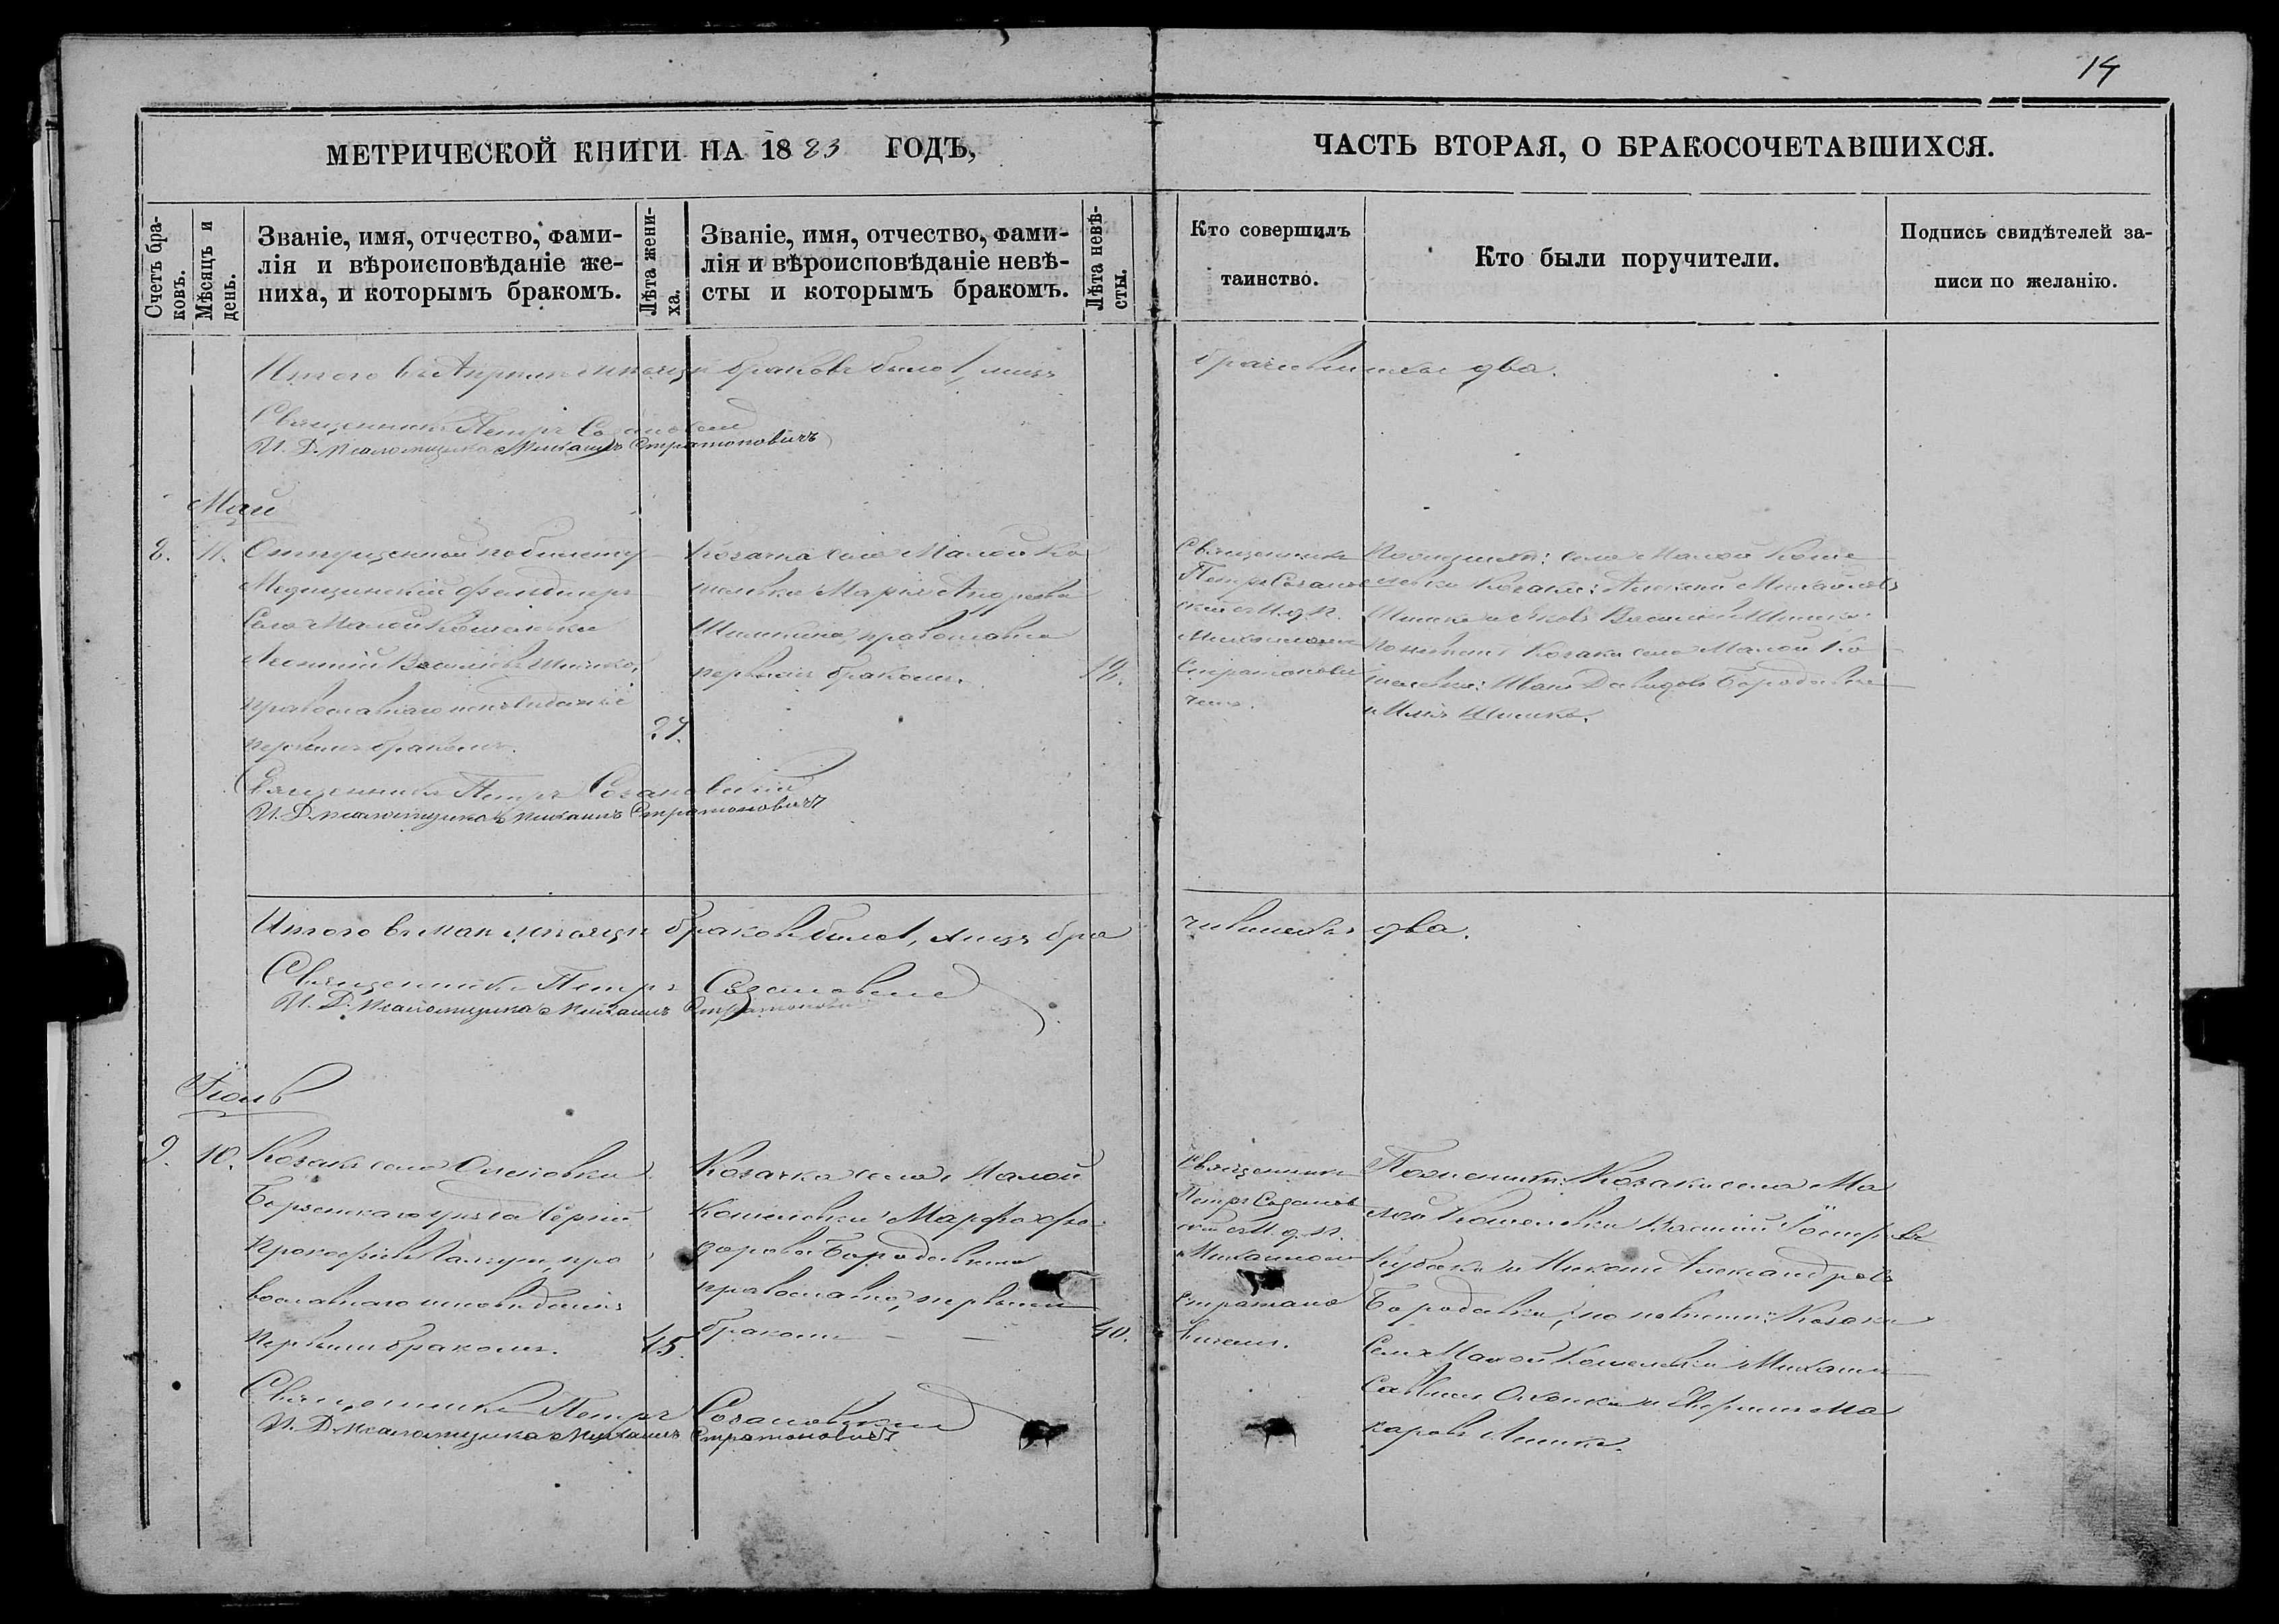 14
МЕТРИЧЕСКОЙ КНИГИ НА 1883 ГОДЪ,
ЧАСТЬ ВТОРАЯ, О БРАКОСОЧЕТАВШИХСЯ.
Счетъ бра-
ковъ.
Мѣсяцъ и
день.
Званіе, имя, отчество, фами-
лія и вѣроисповѣданіе же-
ниха, и которымъ бракомъ.
Лѣта жени-
ха.
Званіе, имя, отчество, фами-
лія и вѣроисповѣданіе невѣ-
сты и которымъ бракомъ.
Лѣта невѣ-
сты.
Кто совершилъ
таинство.
Кто были поручители.
Подпись свидѣтелей за-
писи по желанію.
Итого въ Апрѣлѣ мѣсяцѣ браковъ было 1, лицъ
брачившихся два.
Священникъ Петръ
И. Д. Псаломщика Михаилъ Стратоновичъ
Май
8. 11.
Отпущенный по билету
Медицинскій фельдшеръ
Села Малой Кошелевки
Леонтій Василіевъ Шишко,
православнаго исповѣданія
первымъ бракомъ.
Козачка села Малой Ко
шелевки Марія Андреева
православна
первымъ бракомъ.
Священникъ
Петръ
скій съ И. д. П.
Михаиломъ
Стратонови
чемъ.
По женихѣ: села Малой Коше
левки Козаки: Алексѣй Михайловъ
Шишко и Яковъ Василіевъ Шишко.
По невѣстѣ Козаки села Малой Ко
шелевки: Иванъ Давидовъ Бородавка
и Илія Шишко.
Священникъ Петръ
И. Д. Псаломщика Михаилъ Стратоновичъ
Итого въ маѣ мѣсяцѣ браковъ было 1, лицъ бра
чившихся два.
Священникъ Петръ
И. Д. Псаломщика Михаилъ Стратоновичъ
Іюль
9. 10.
Козакъ села Оленовки
Борзенскаго уѣзда Сергій
Прокофіевъ пра
вославнаго исповѣданія
первымъ бракомъ.
45.
Козачка села Малой
Кошелевки Марфа Фео
дорова Бородавкина
православна, первымъ
бракомъ
40.
Священникъ
Петръ
скій съ И. д. П.
Михаиломъ
Стратоно
вичемъ.
По женихѣ: Козаки села Ма
лой Кошелевки Василій
и Александровъ
Бородавка; по невѣстѣ: Козаки
Села Малой Кошелевки Михаилъ
и Ма
каровъ
Священникъ Петръ
И. Д. Псаломщика Михаилъ Стратоновичъ